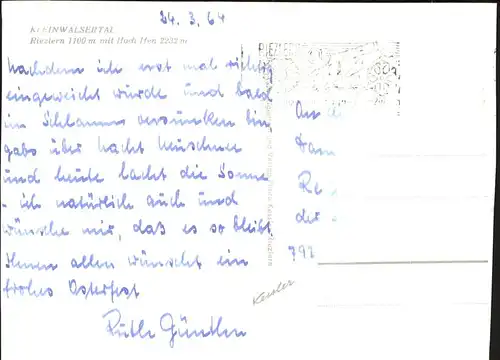 24.3.64
KLEINWALSERTAL
Riezlern 1100 m mit Hoch Ifen 2232 m
Nachdem ich erst mal richtig
eingeweicht wurde und bald
im Schlamm versunken bin,
gabs über Nacht Neuschnee
und heute lacht die Sonne
- ich natürlich auch und
wünsche mir, daß es so bleibt.
Ihnen allen wünscht ein
frohes Osterfest
Ruth Günther
RIEZLER
An di
Dam
Re
der
792
Kessler